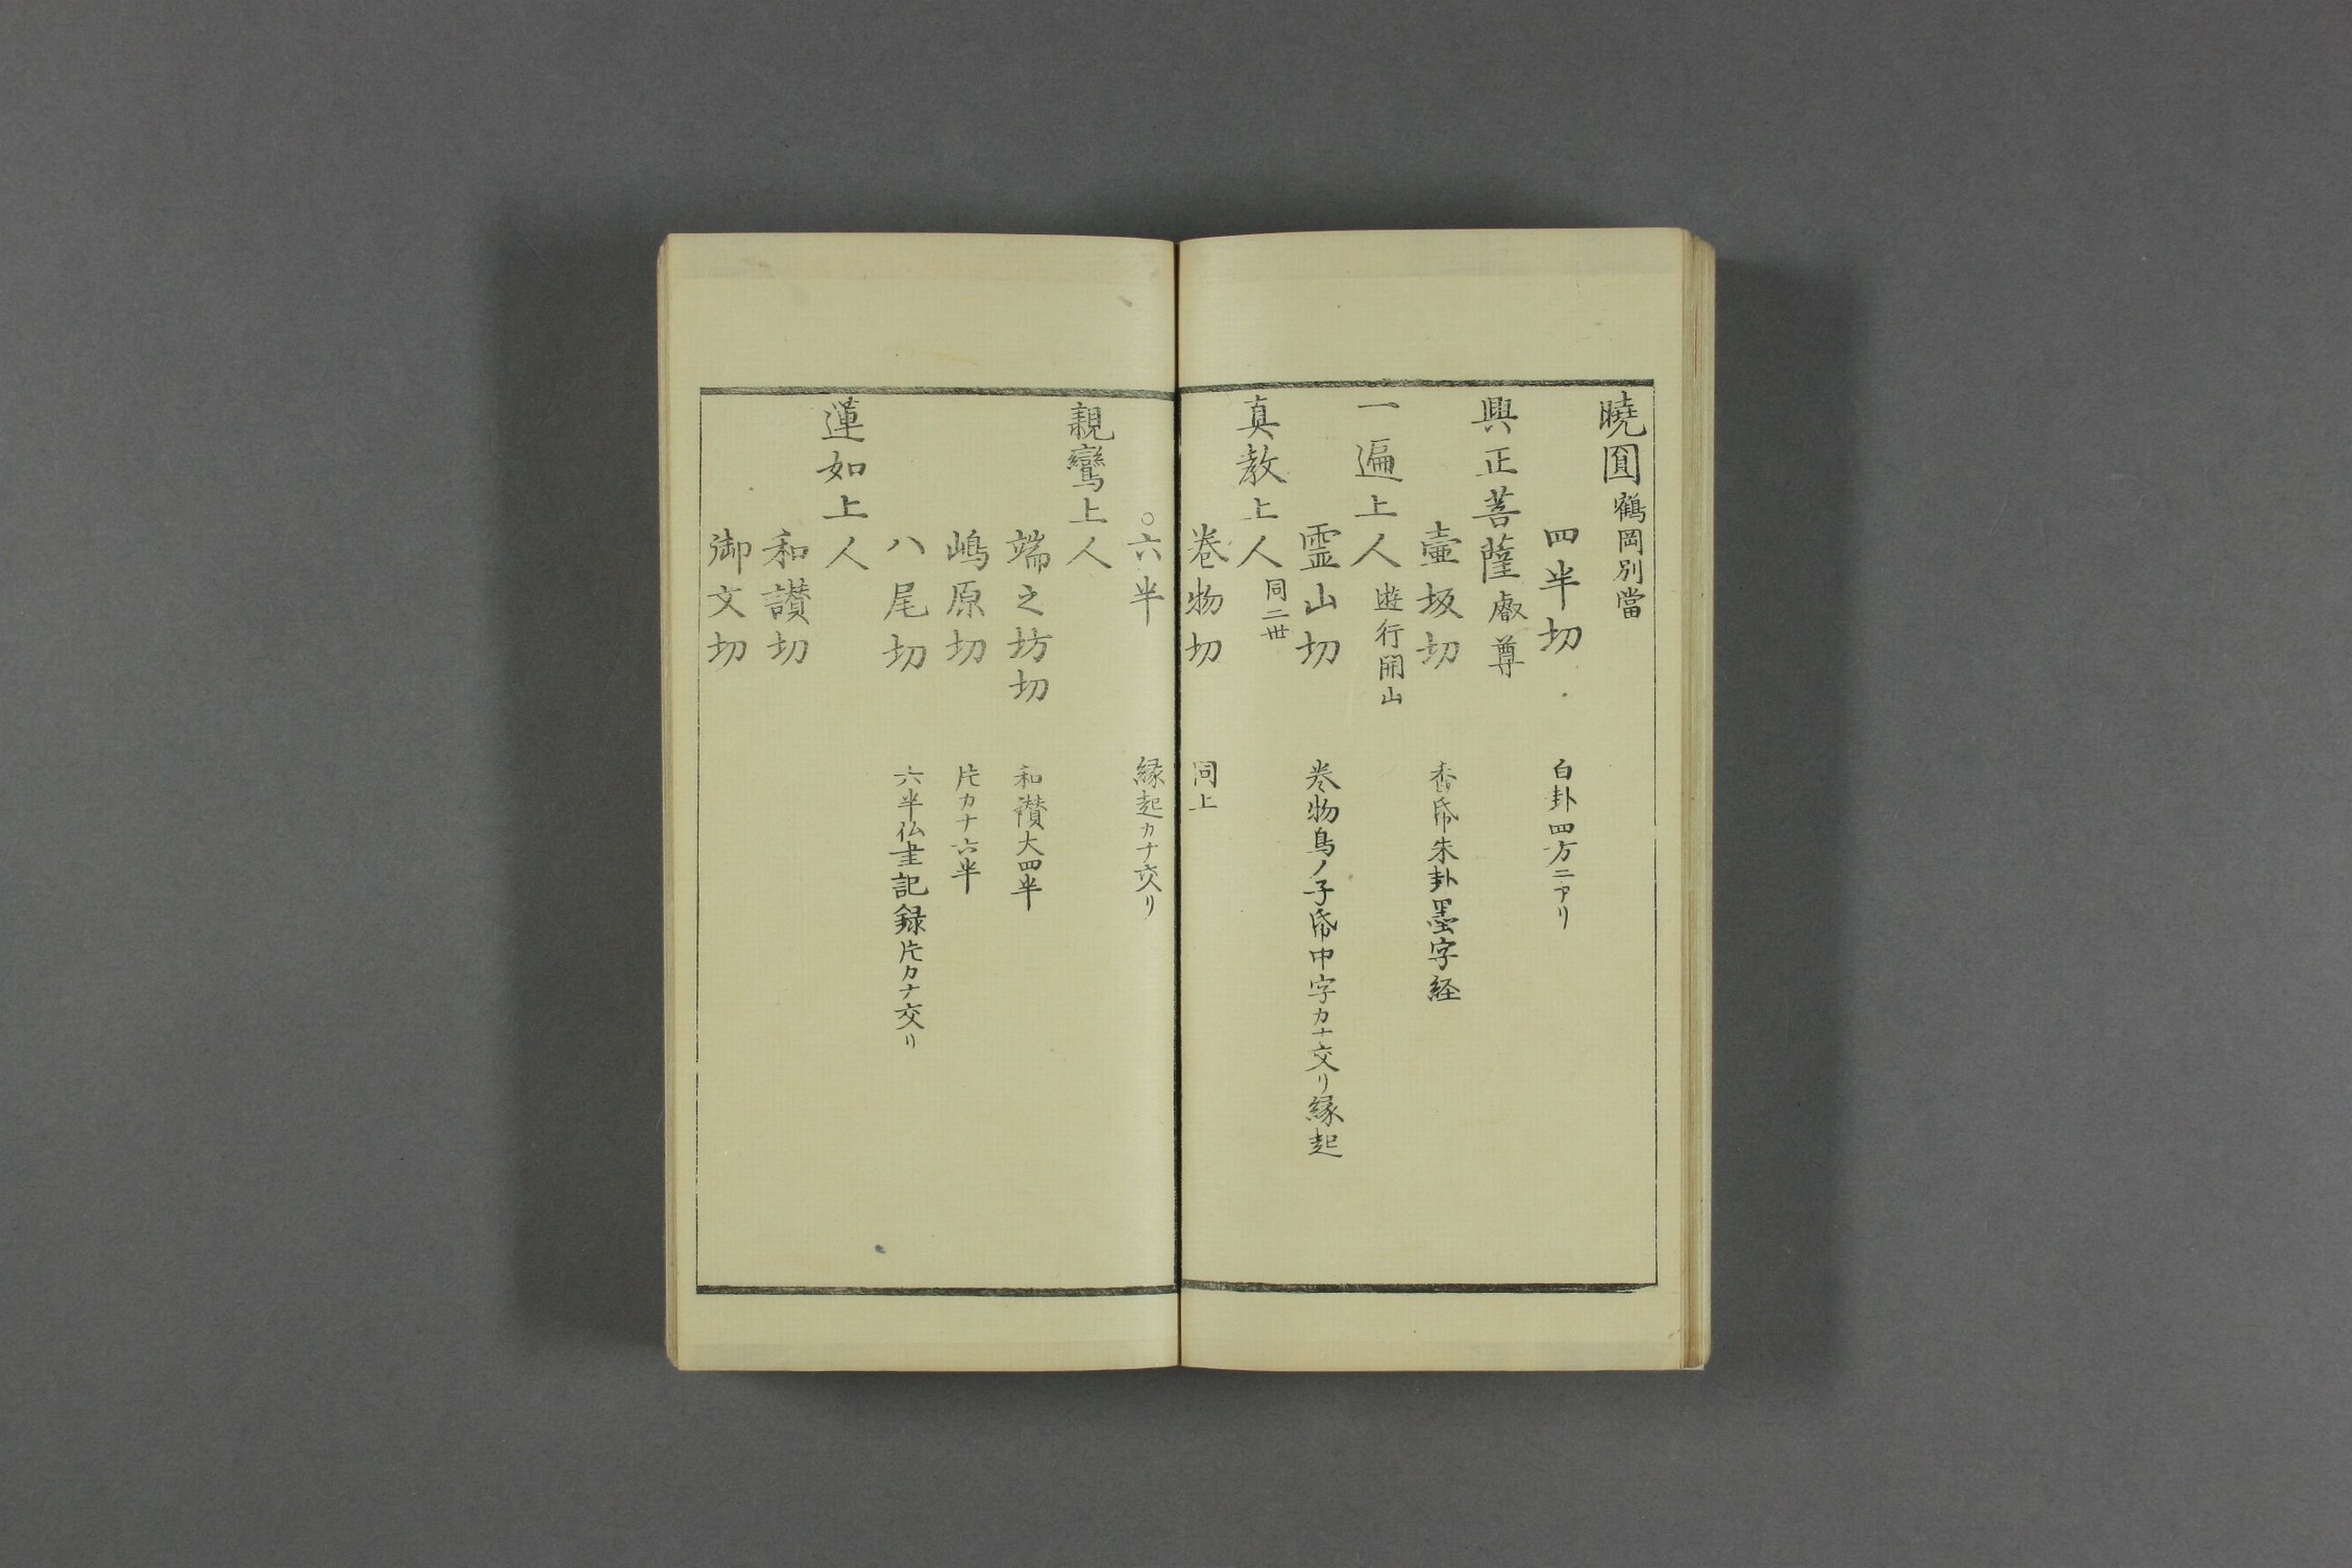 曉圓 鶴岡別當
四半切 白卦四方ニアリ
興正菩薩 叡尊
壷坂切 香帋朱卦墨字経
一遍上人 遊行開山
霊山切 巻物鳥ノ子帋中字カナ交リ縁起
真教上人 同二世
巻物切 同上
○六半 縁起カナ交リ
親鸞上人
端之坊切 和讃大四半
嶋原切 片カナ六半
八尾切 六半仏書記録片カナ交リ
蓮如上人
和讃切
御文切